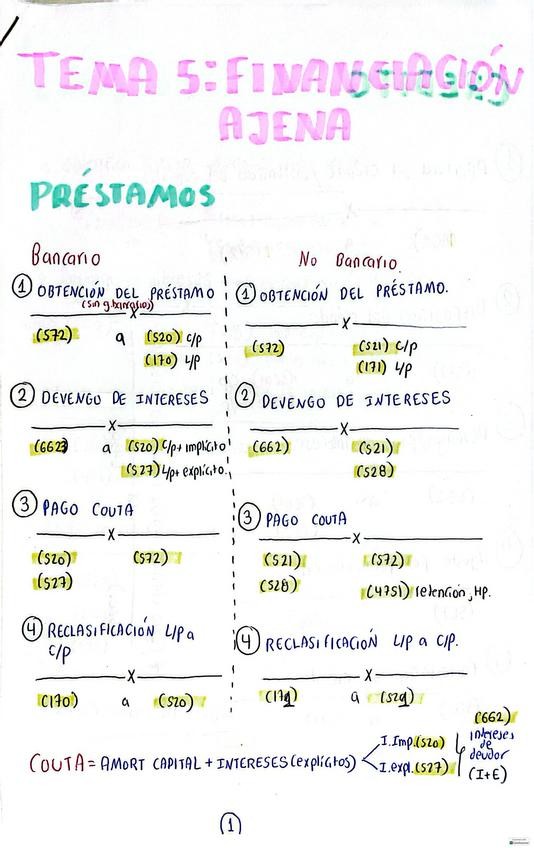 TEMA 5: FINANCIACIÓN
AJENA
PRÉSTAMOS
Bancario
① OBTENCIÓN DEL PRÉSTAMO
(sin g.bancarios)
x
(572) a (520) c/p
(170) L/p
② DEVENGO DE INTERESES
x
(662) a (520) c/p + implícito
(527) L/p + explícito.
③ PAGO COUTA
x
(520) (572)
(527)
④ RECLASIFICACIÓN L/p a
c/p
x
(170) a (520)
No Bancario.
① OBTENCIÓN DEL PRÉSTAMO.
x
(572) (521) c/p
(171) L/p
② DEVENGO DE INTERESES
x
(662) (521)
(528)
③ PAGO COUTA
x
(521) (572)
(528) (4751) retención, HP.
④ RECLASIFICACIÓN L/P a C/P.
x
(171) a (521)
COUTA = AMORT CAPITAL + INTERESES (explícitos)
I.Imp.(520)
I.expl.(527)
(662)
intereses
de
deudor
(I+E)
①